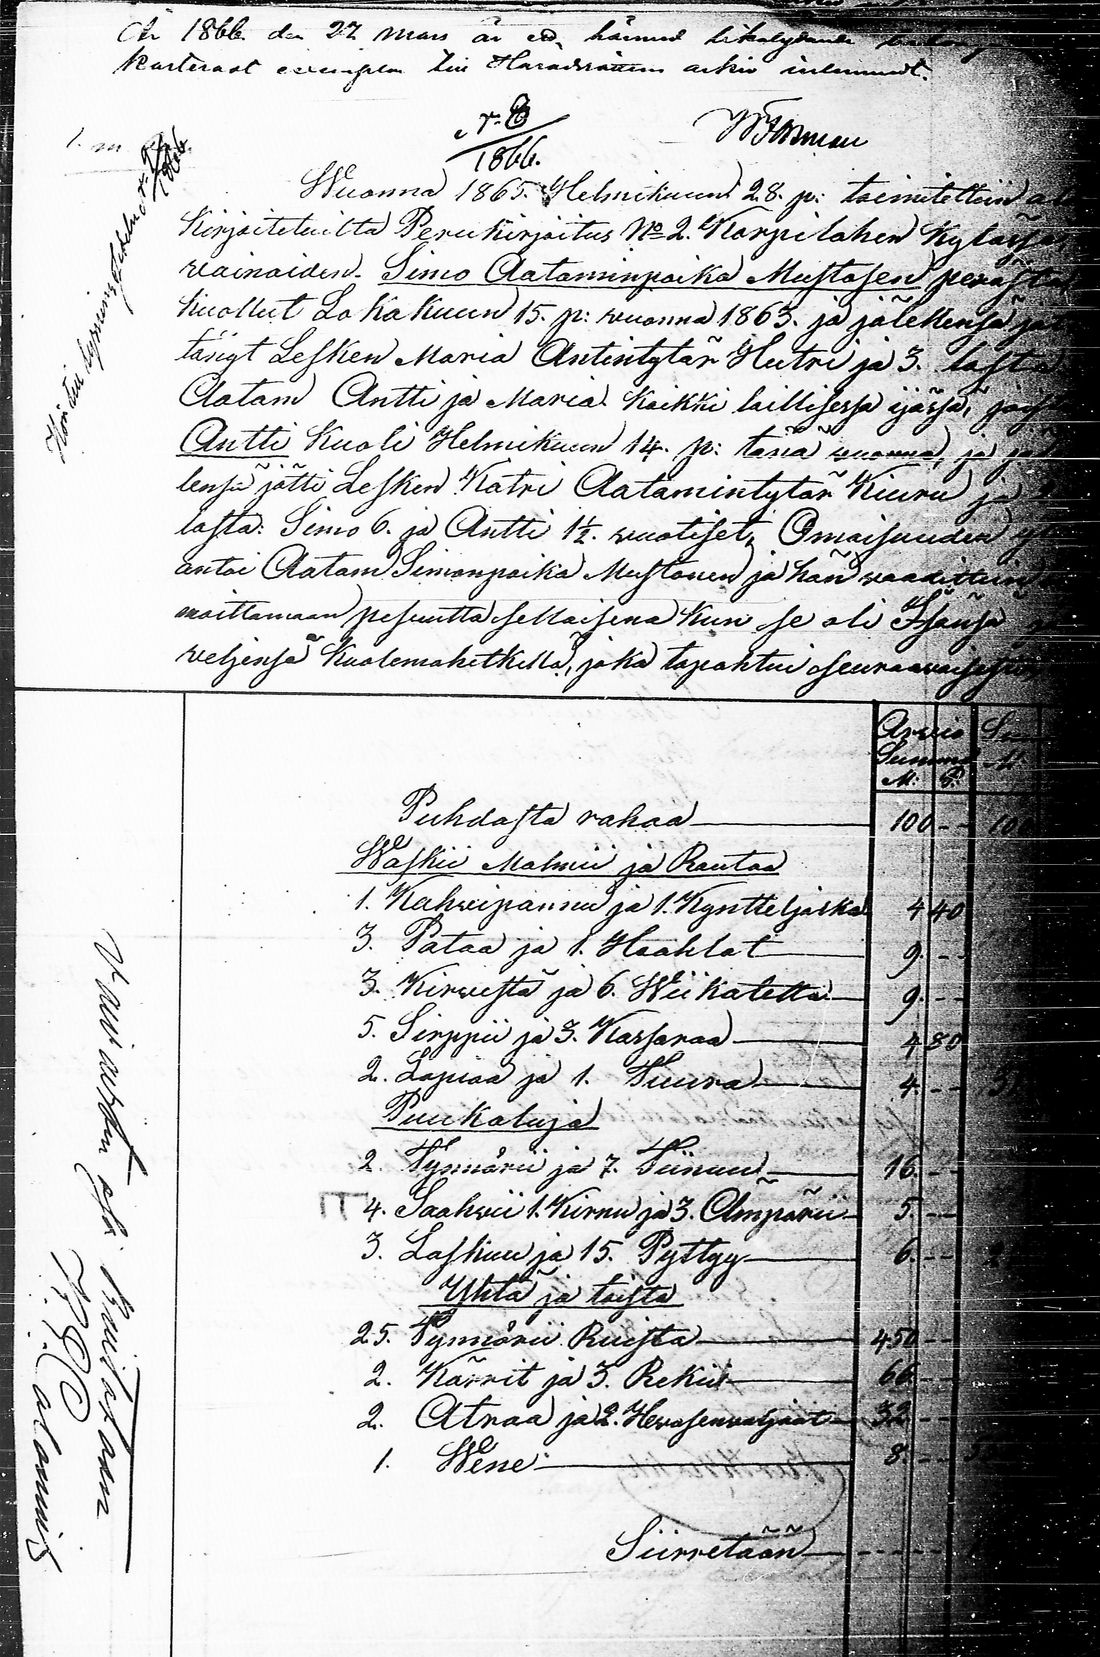 År 1866 den 27 Mars är ett härmed likalydande
Karterat exemplar till Häradsrättens arkiv inlemnadt.
N:o 8
1866.
Wuonna 1865. Helmikuun 28. p: toimitettiin al
kirjoitetuilta Perukirjoitus No 2. Karpilahen Kylässä
wainaiden. Simo Aataminpoika Mustosen perästä
kuollut Lokakuun 15. p: wuonna 1863. ja jälekensä jä
täsigt Lesken Maria Antintytär Hutri ja 3. lasta
Aatam Antti ja Maria. Kaikki laillisessa ijässä, joista
Antti Kuoli Helmikuun 14. p: tänä wuonna, ja jä
lensä jätti Lesken Katri Aatamintytär Kiuru ja 2
lasta: Simo 6. ja Antti 1½. wuotiset, Omaisuuden
antoi Aatam Simonpoika Mustonen ja hän waadittiin
pesuutta sellaisena kun se oli Isänsä
veljensä Kuolemahetkellä, joka tapahtui seuraavaisesti
Arwio
Summa
M: P:
M.
Puhdasta rahaa 100 -- 100
Waskii Malmii ja Rautaa
1. Kahvipannu ja 1. Kyntteljalka 4 40
3. Pataa ja 1. Haahlat 9. --
3. Kirvestä ja 6. Wiikatetta 9 --
5. Sirppii ja 3. Kassaraa 4 80
2. Lapiaa ja 1. Tuura 4. --
Puukaluja
2. Tynnärii ja 7. Tiinuu 16. --
4. Saahvii 1. Kirnu ja 3. Ämpärii 5. --
3. Laskuu ja 15. Pyttyy 6. --
Yhtä ja toista
25. Tynnärii Ruista 450 --
2. Kärrit ja 3. Rekii 66 --
2. Atraa ja 2. Hevosenvaljaat 32 --
1. Wene 8. --
Siirretään